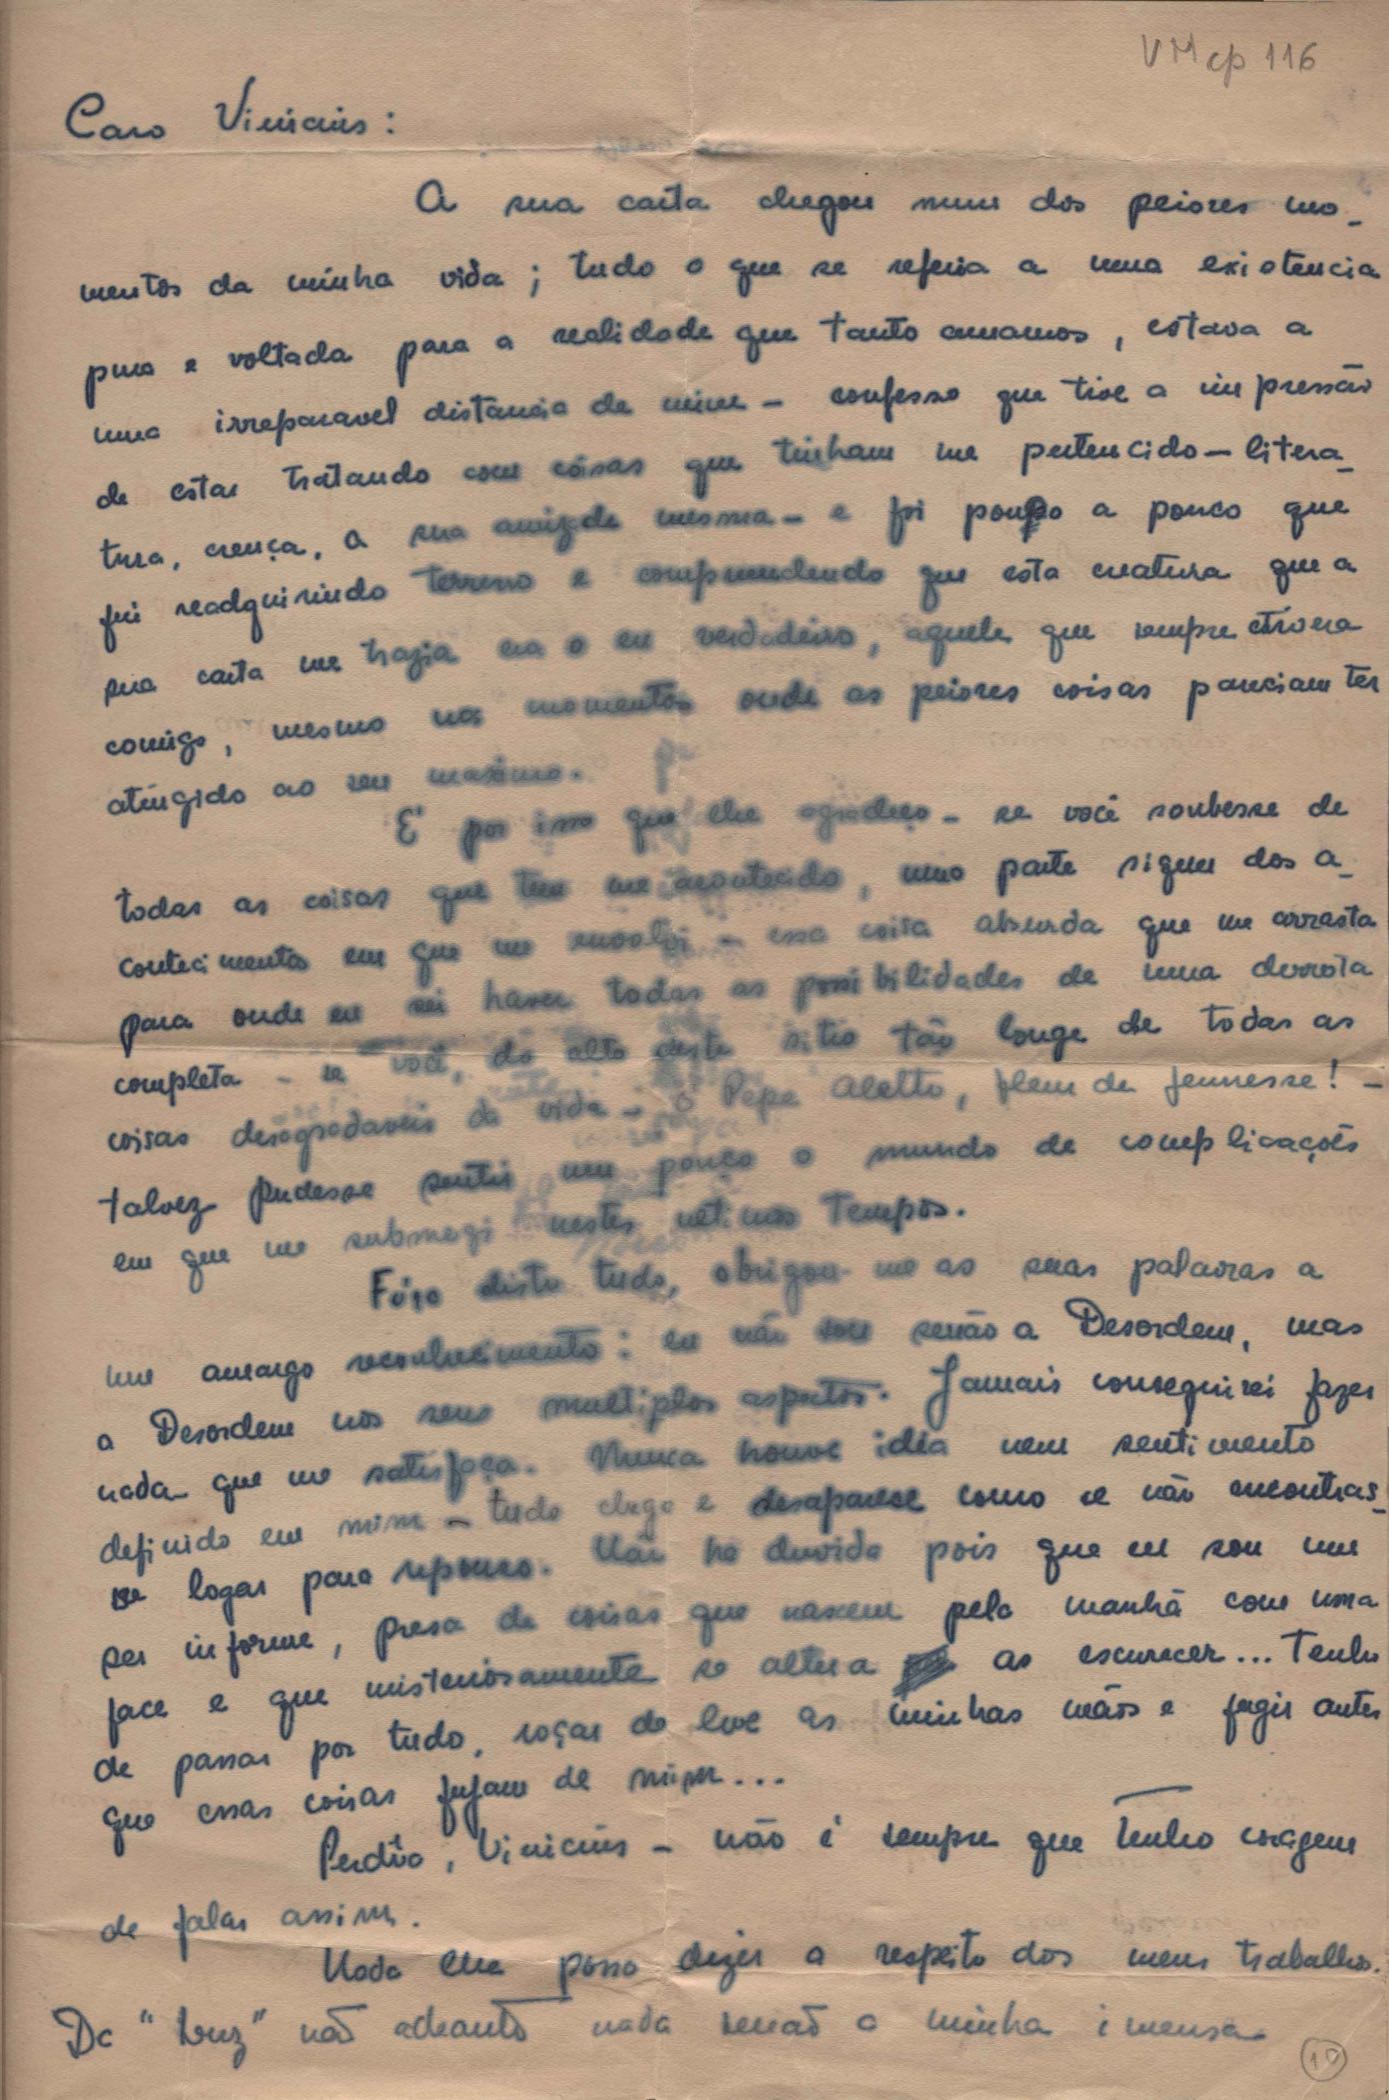 VMcp 116
Caro Vinicius:
A sua carta chegou num dos peiores mo-
mentos da minha vida; tudo o que se referia a uma existencia
pura e voltada para a realidade que tanto amamos, estava a
uma irreparavel distância de mim - confesso que tive a impressão
de estar tratando com cóisas que tinham me pertencido - litera-
tura, crença, a sua amizade mesma - e foi pouco a pouco que
fui readquirindo terreno e comprendendo que esta creatura que a
sua carta me trazia era o eu verdadeiro, aquele que sempre estivera
comigo, mesmo nos momentos onde as peiores coisas pareciam ter
atingido ao seu maximo.
E' por isso que lhe agradeço - se você soubesse de
todas as coisas que tem me acontecido, uma parte siquer dos a-
contecimentos em que me envolvi - essa coisa absurda que me arrasta
para onde eu sei haver todas as possibilidades de uma derrota
completa - se você, do alto deste sitio tão longe de todas as
coisas desagradaveis da vida - ó Pepe Aletto, fleur de jeunesse! -
talvez pudesse sentir um pouco o mundo de complicações
em que me submergi nestes ultimos tempos.
Fóra disto tudo, obrigou-me as suas palavras a
um amargo reconhecimento: eu não sou senão a Desordem, mas
a Desordem nos seus multiplos aspetos. Jamais conseguirei fazer
nada que me satisfaça. Nunca houve idéa nem sentimento
definido em mim - tudo chega e desaparece como se não encontras-
se logar para repouso. Não ha duvida pois que eu sou um
ser informe, presa de coisas que nascem pela manhã com uma
face e que misteriosamente se altera ao escurecer... Tenho
de passar por tudo, roçar de leve as minhas mãos e fugir antes
que essas coisas fujam de mim...
Perdôo, Vinicius - não é sempre que tenho coragem
de falar assim.
Nada lhe posso dizer a respeito dos meus trabalhos.
Da "Luz" não adeanto nada senão a minha imensa
10